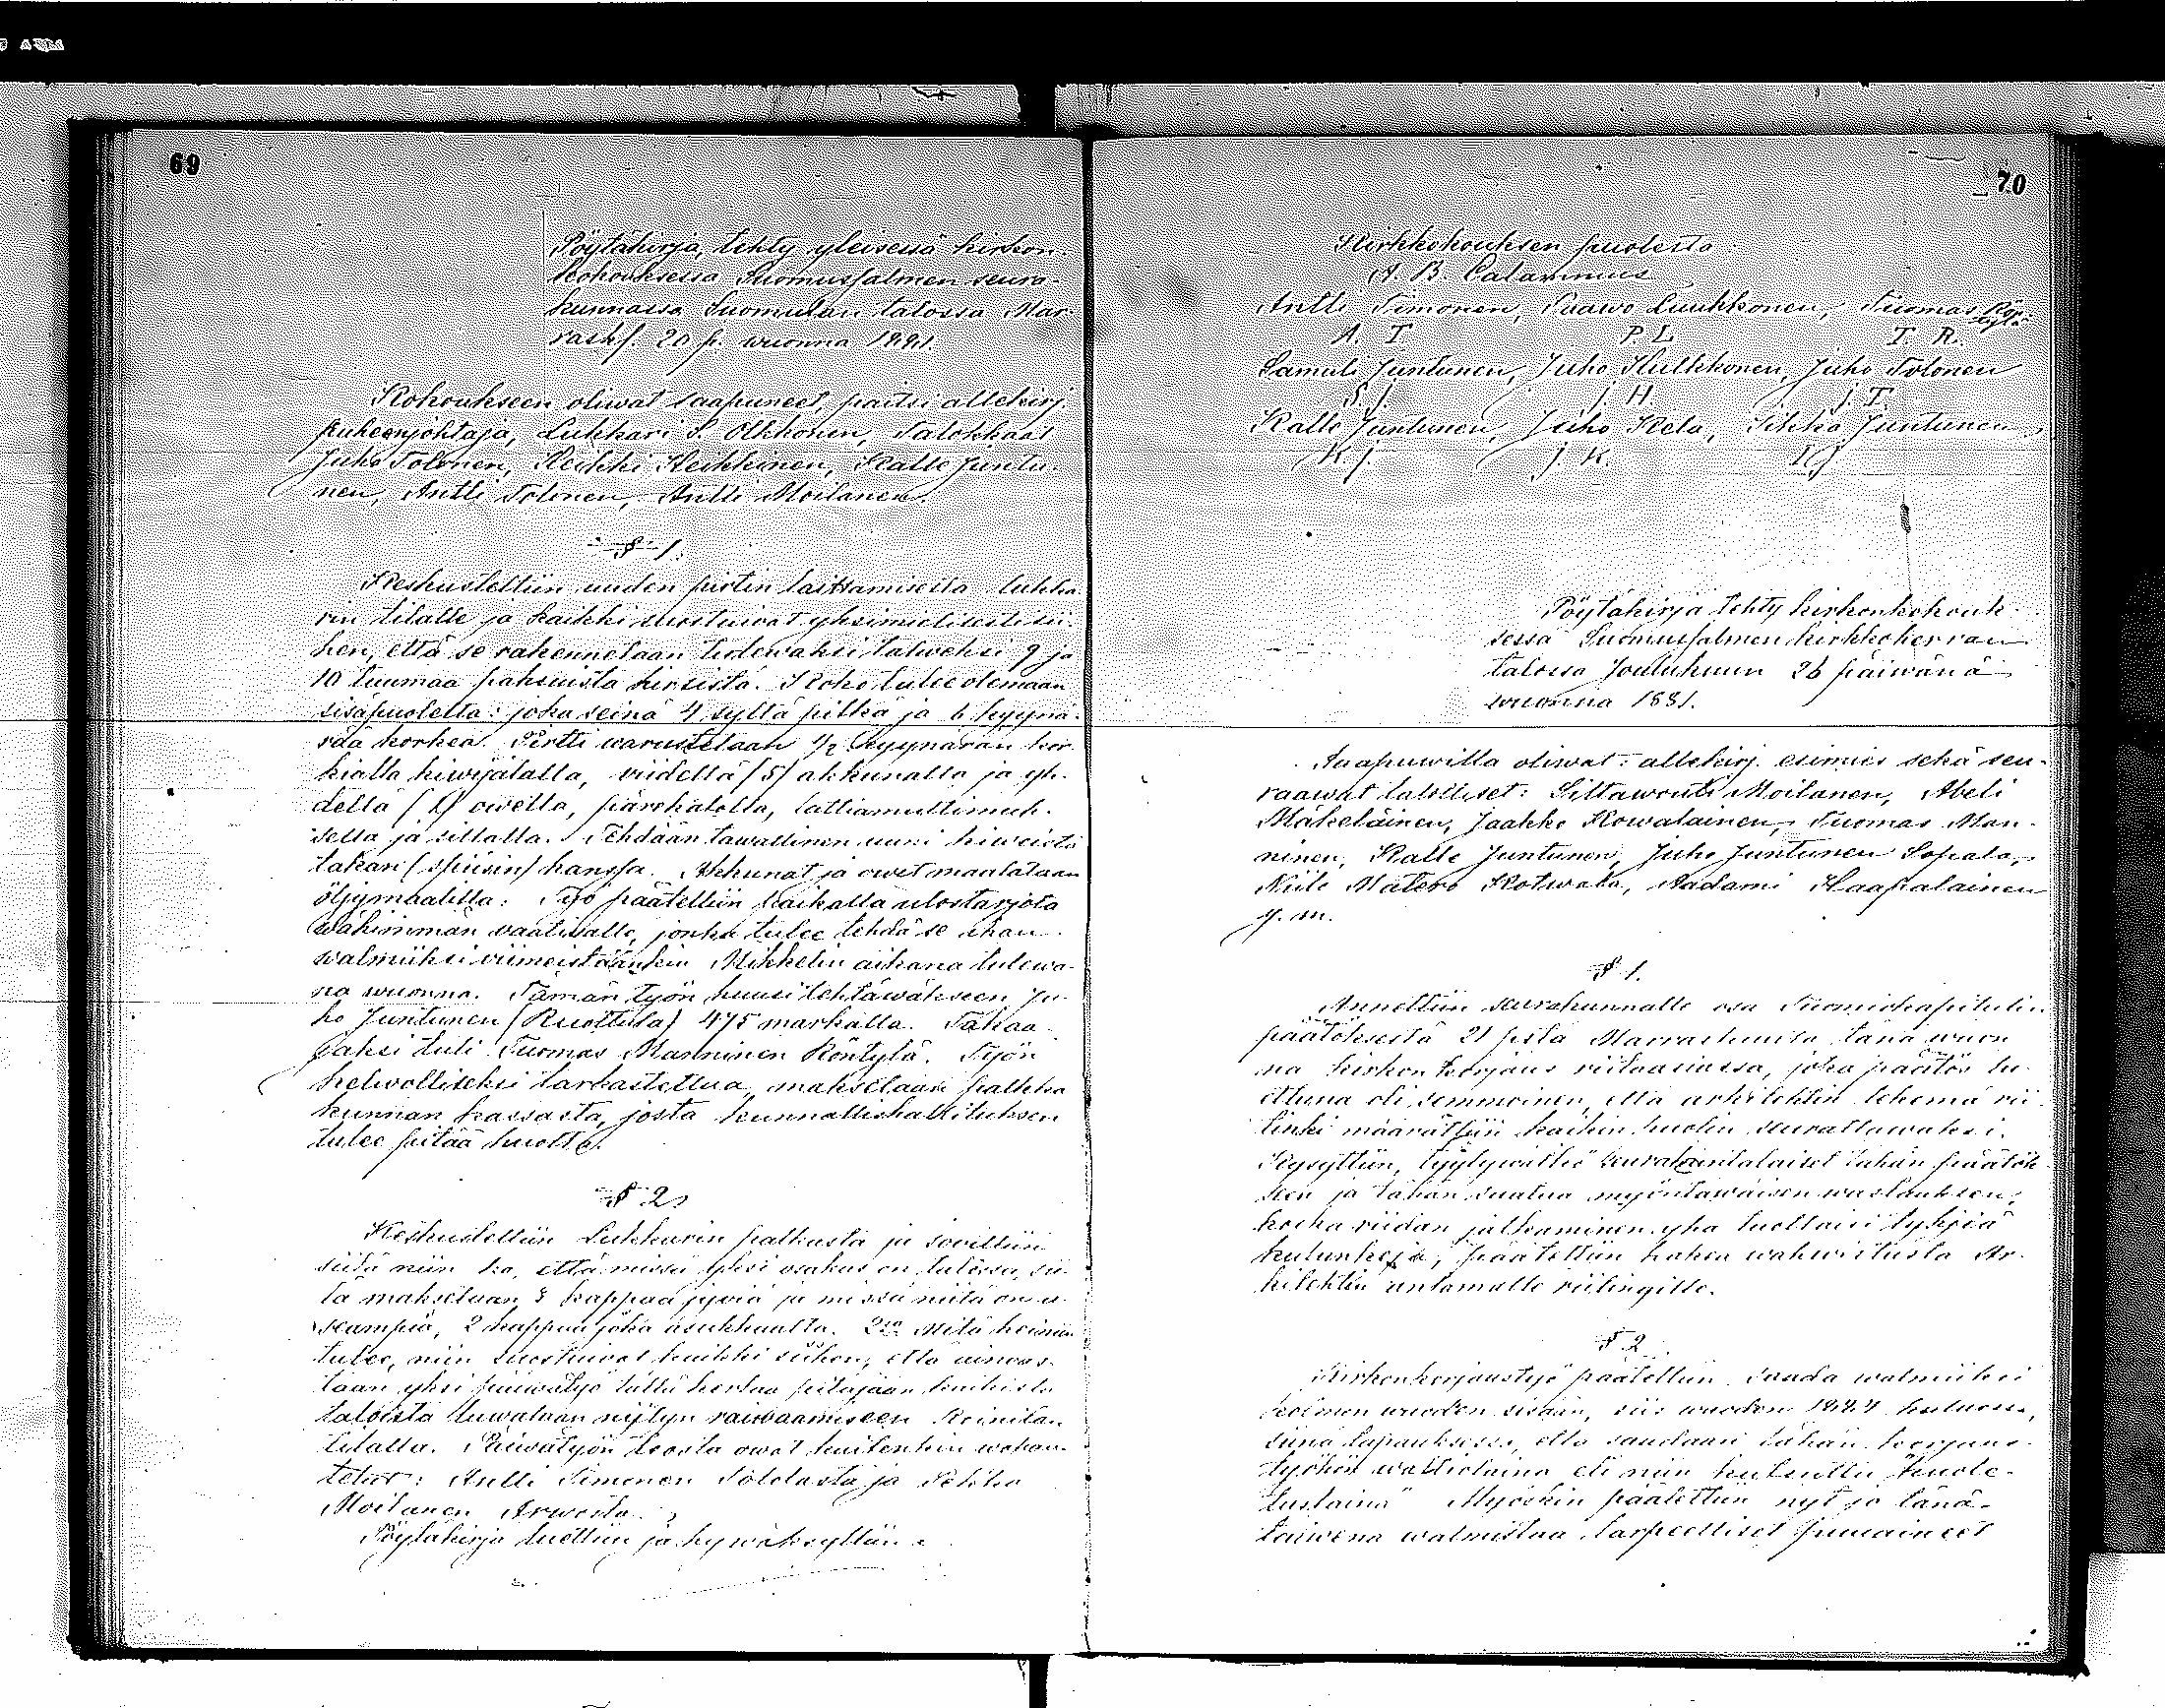 69
Pöytäkirja, tehty yleisessä kirkon-
kokouksessa Suomussalmen seura-
kunnassa Suomulan talossa Mar-
rask. 20 p. wuonna 1881.
Kokoukseen oliwat saapuneet, paitsi allekirj.
puheenjohtaja, Lukkari S. Olkkonen, Talokkaat
Juho Tolonen, Heikki Heikkinen, Kalle Juntu-
nen, Antti Tolonen, Antti Moilanen.
§ 1.
Keskusteltiin uuden pirtin laittamisesta lukka-
rin tilalle ja kaikki suostuivat yksimielisesti sii-
hen, että se rakennetaan tulewaksi talweksi 9 ja
10 tuumaa paksuista hirsistä. Koko tulee olemaan
sisäpuolelta: joka seinä 4 syltä pitkä ja 6 kyynä-
rää korkea. Pirtti warustetaan 1/2 kyynärän kor-
kialla kiwijalalla, viidellä (5) akkunalla ja yh-
dellä (1) owella, pärekatolla, lattiamultimuk-
sella ja sillalla. Tehdään tawallinen uuni kiweistä
takan (spiisin) kanssa. Akkunat ja owet maalataan
öljymaalilla. Työ päätettiin paikalla ulostarjota
wähimmän vaativalle, jonka tulee tehdä se ihan
walmiiksi viimeistäänkin Mikkelin aikana tulewa-
na wuonna. Tämän työn huusi tehtäwäkseen Ju-
ho Juntunen (Ruottula) 475 markalla. Takaa-
jaksi tuli Tuomas Manninen Röntylä. Työn
kelwolliseksi tarkastettua, maksetaan palkka
kunnan kassasta, josta kunnallishallituksen
tulee pitää huolta.
§ 2.
Keskusteltiin Lukkarin palkasta ja sovittiin
siitä niin ko, että missä yksi asukas on talossa, sii-
tä maksetaan 3 kappaa jyviä ja missä niitä on u-
seampia, 2 kappaa joka asukkaalta. Mitä heiniin
tulee, niin suostuivat kaikki siihen, että ainoas-
taan yksi päiwätyö tällä kertaa pitäjään kaikista
taloista luwataan niityn raiwaamiseen Reinilan
tilalla. Päiwätyön teosta owat kuitenkin
Antti Timonen ja Pekka
Moilanen Arwosta.
Pöytäkirja luettiin ja hywäksyttiin.
70
Kirkkokouksen puolesta
A. B. Calamnius
Antti Timonen, Paawo Luukkonen, Tuomas
A. T. P. L. T. R.
Samuli Juntunen, Juho Hulkkonen, Juho Tolonen
S. J. J. H. J. T.
Kalle Juntunen, Juho Kela, Juntunen
K. J. J. K. J.
Pöytäkirja tehty kirkonkokouk-
sessa Suomussalmen kirkkoherran
talossa Joulukuun 26 päiwänä
wuonna 1881.
Saapuwilla oliwat: allekirj. esimies sekä seu-
raawat talolliset: Siltawouti Moilanen, Abeli
Mäkeläinen, Jaakko Kowalainen, Tuomas Man-
ninen, Kalle Juntunen, Juho Juntunen Sopala,
Niilo Matero Kotwala, Aadami Haapalainen
y. m.
§ 1.
Annettiin seurakunnalle osa Tuomiokapitulin
päätöksestä 21 p:stä Marraskuuta tänä wuon-
na kirkon korjaus riitaasiassa, joka päätös lu-
ettuna oli semmoinen, että arkitektin tekemä rii-
tinki määrättiin kaikin puolin seurattawaksi.
Kysyttiin, tyytywätkö seurakuntalaiset tähän päätök-
seen ja tähän saatua myöntäwäisen wastauksen,
koska riidan jatkaminen yhä tuottaisi tyhjiä
kulunkeja, päätettiin hakea wahwistusta Ar-
kitektin antamalle riitingille.
§ 2.
Kirkonkorjaustyö päätettiin saada walmiiksi
kolmen wuoden sisään, siis wuoden 1884 kuluessa,
siinä tapauksessa, että saadaan tähän korjaus-
työhön waltiolaina eli niin kutsuttu "kuole-
tuslaina" Myöskin päätettiin nyt jo tänä
talwena walmistaa tarpeelliset puuaineet